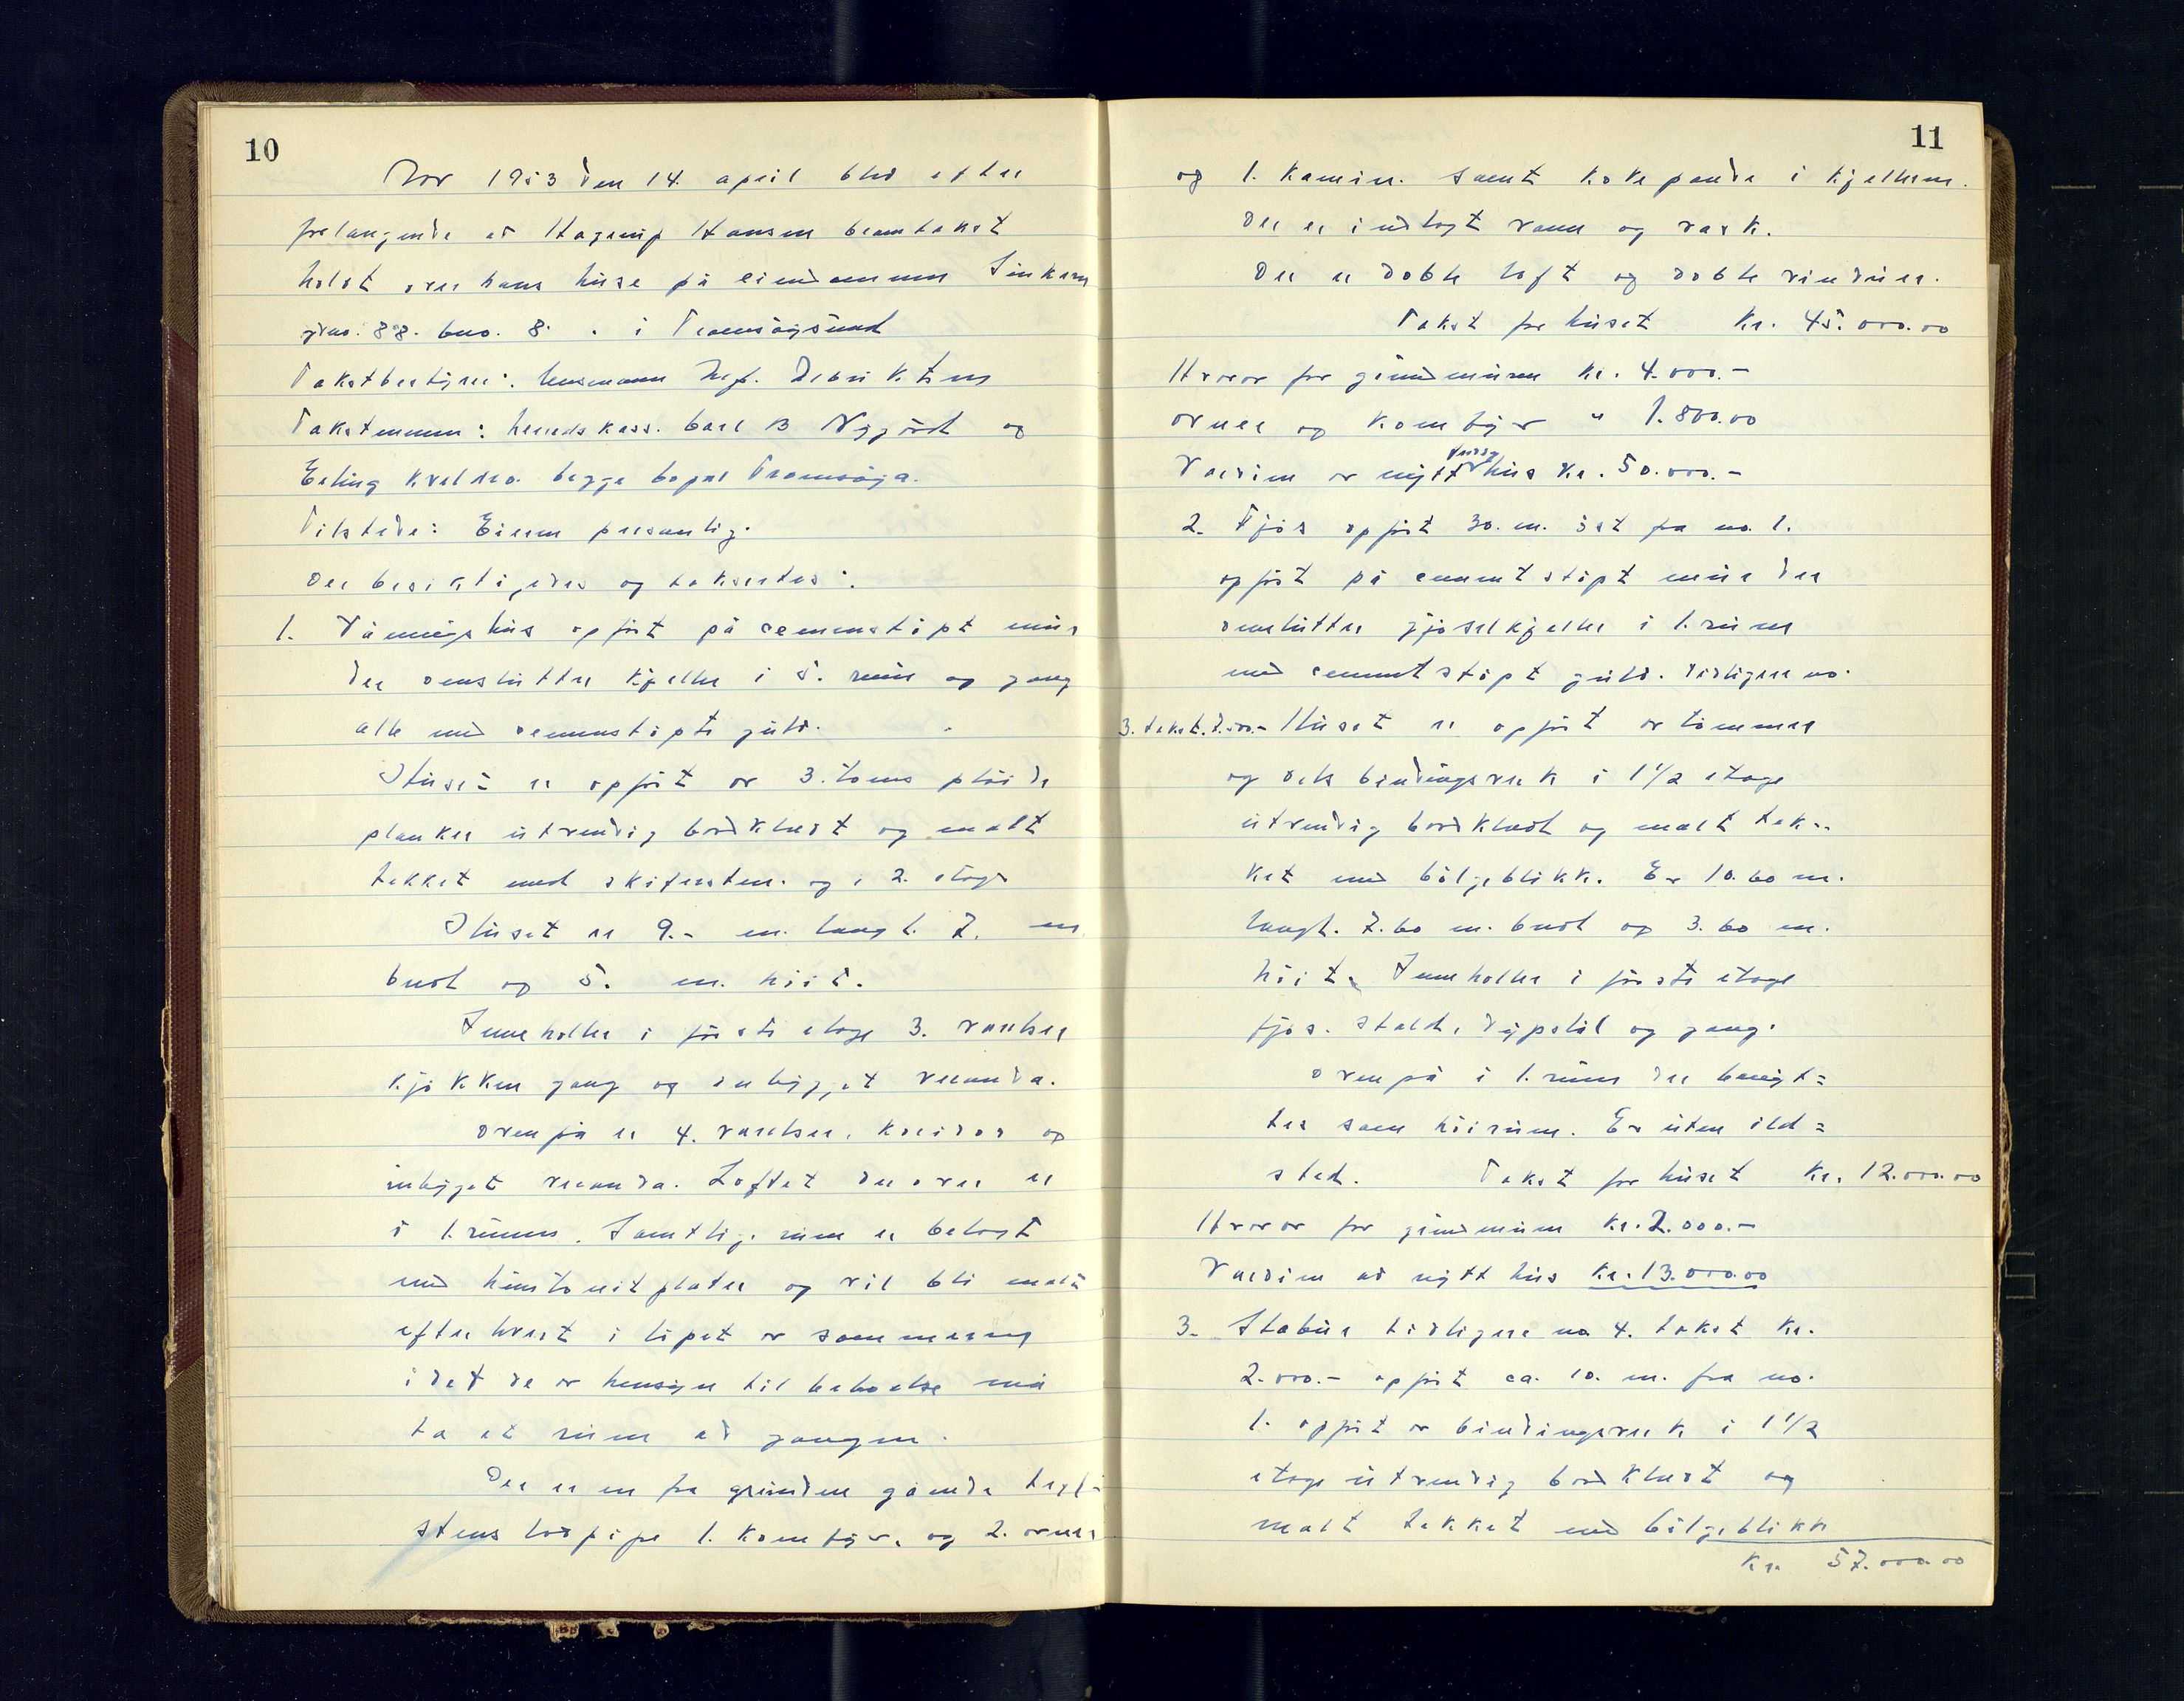 10
Aar 1953 den 14. april blev efter
forlangende av Hagerup Hansen branntakst
holdt over hans huse på eiendommen Finkrem
grno. 88. bno. 8. i Tromsöysund
Takstbestyrer: lensmann Hof. Didriksen
Takstmenn: herredskass. Carl B Nygård og
Erling Kvelmo. begge bopel Tromsöya.
Tilstede: Eieren personlig.
Der besiktigedes og takseretes:
1. Våningshus opfört på cementstöpt mur
der omslutter kjeller i 5. rum og gang
alle med cementstöpte gulv.
Huset er opfört av 3. toms plöide
planker utvendig bordklædt og malt
tekket med skifersten. og i 2. etage
Huset er 9.- m. langt. 7. m
bredt og 5. m. höit.
Inneholder i förste etage 3. værelser
kjökken gang og inbygget veranda.
Ovenpå er 4. værelser. Koridor og
inbyget veranda. Loftet derover er
i 1. rum. Samtlige rum er belagt
med huntonitplater og vil bli malt
efterhvert i löpet av sommeren
idet de av hensyn til beboelse må
ta et rum ad gangen.
Der er en fra grunden gående tegl-
stens lodpipe 1. Komfyr. og 2. ovner
11
og 1. Kamin. samt Kokepande i Kjelleren.
Der er indlagt vann og vask.
Der er doble loft og doble vinduer.
Takst for huset Kr. 45.000.00
Hvorav for grundmuren Kr. 4.000.-
ovner og Komfyr " 1.800.00
Værdien av nytt hus Kr. 50.000.-
2. Fjös opfört 30. m. öst fra no. 1.
opfört på cementstöpt mur der
omslutter gjöselkjeller i 1. rum
med cementstöpt gulv. Tidligere no.
3. takst. 7.500.- Huset er opfört av tömmer
og dels bindingsverk i 1 1/2 etage
utvendig bordklædt og malt tek-
ket med bölgeblikk. Er 10.60 m.
langt. 7.60 m. bredt og 3.60 m.
höit. Inneholder i förste etage
fjös. stald, dypstal og gang.
Ovenpå i 1. rum der benyt=
tes som höirum. Er uten ild=
sted. Takst for huset Kr. 12.000.00
Hvorav for grundmuren Kr. 2.000.-
Værdien av nytt hus Kr. 13.000.00
3. Stabur tidligere no 4. takst Kr.
2.000.- opfört ca. 10. m. fra no.
1. opfört av bindingsverk i 1 1/2
etage utvendig bordklædt og
malt tekket med bölgeblikk
Kr. 57.000.00